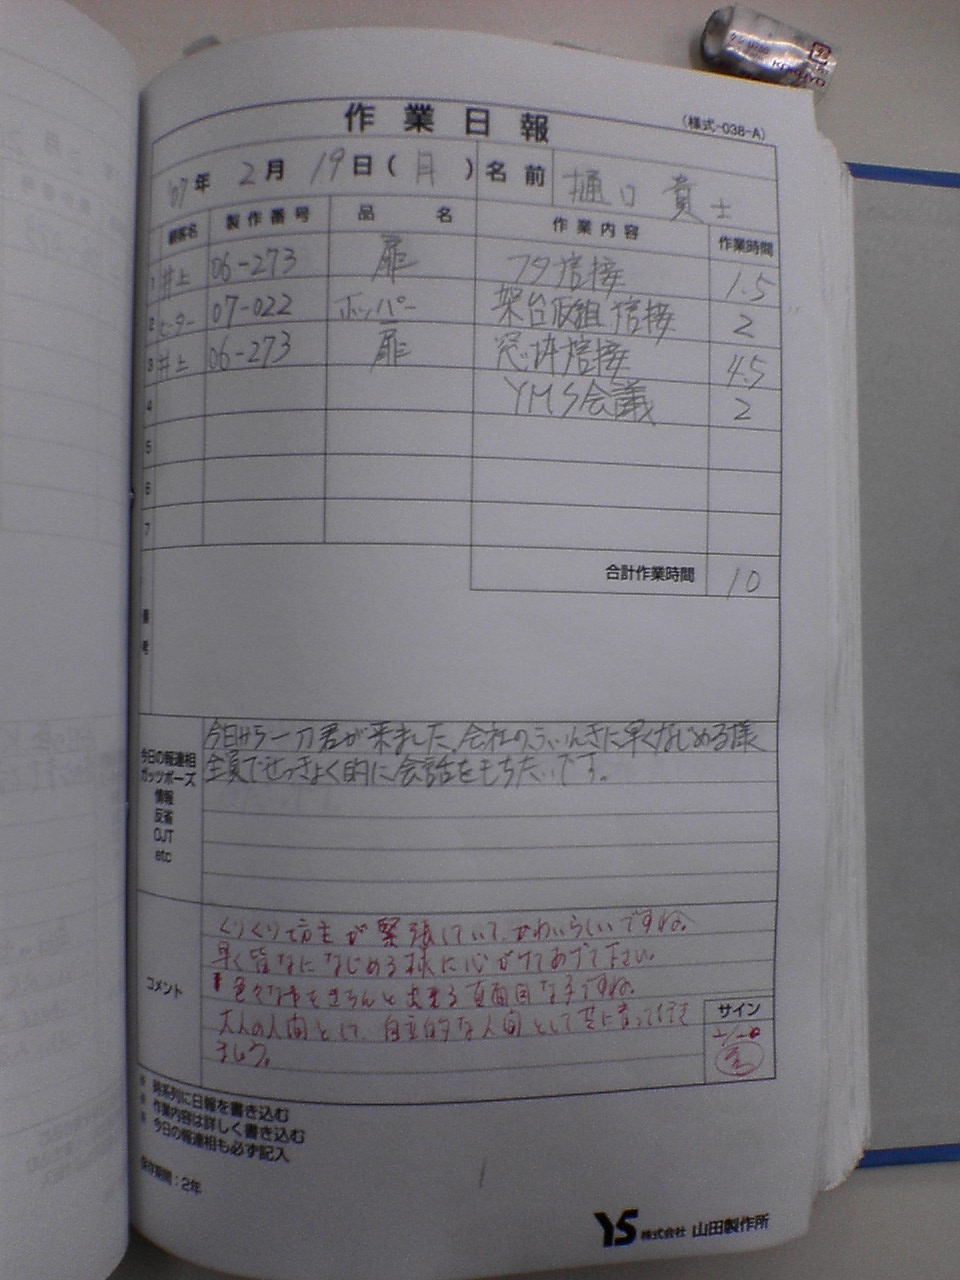 作業日報
(様式-038-A)
'07年 2月 19日(月) 名前 樋口 貴士
顧客名 製作番号 品名 作業内容 作業時間
1 井上 06-273 扉 フタ溶接 1.5
2 ヒーター 07-022 ホッパー 架台仮組 溶接 2
3 井上 06-273 扉 窓枠溶接 4.5
4 YMS会議 2
5
6
7
合計作業時間 10
備考
今日の報連相
ガッツポーズ
情報
反省
OJT
etc
今日から一刀君が来ました、会社のふいんきに早くなじめる様
全員でせっきょく的に会話をもちたいです。
コメント
くりくり坊主が緊張していて、かわいらしいですね。
早く皆なになじめる様に心がけてあげて下さい。
色々な事をきちんと出来る真面目な子ですね。
大人の人間として、自立的な人間として共に育って行き
ましょう。
サイン
2/20
※ 時系列に日報を書き込む
※ 作業内容は詳しく書き込む
※ 今日の報連相も必ず記入
保存期間：2年
YS 株式会社 山田製作所
KOKUYO